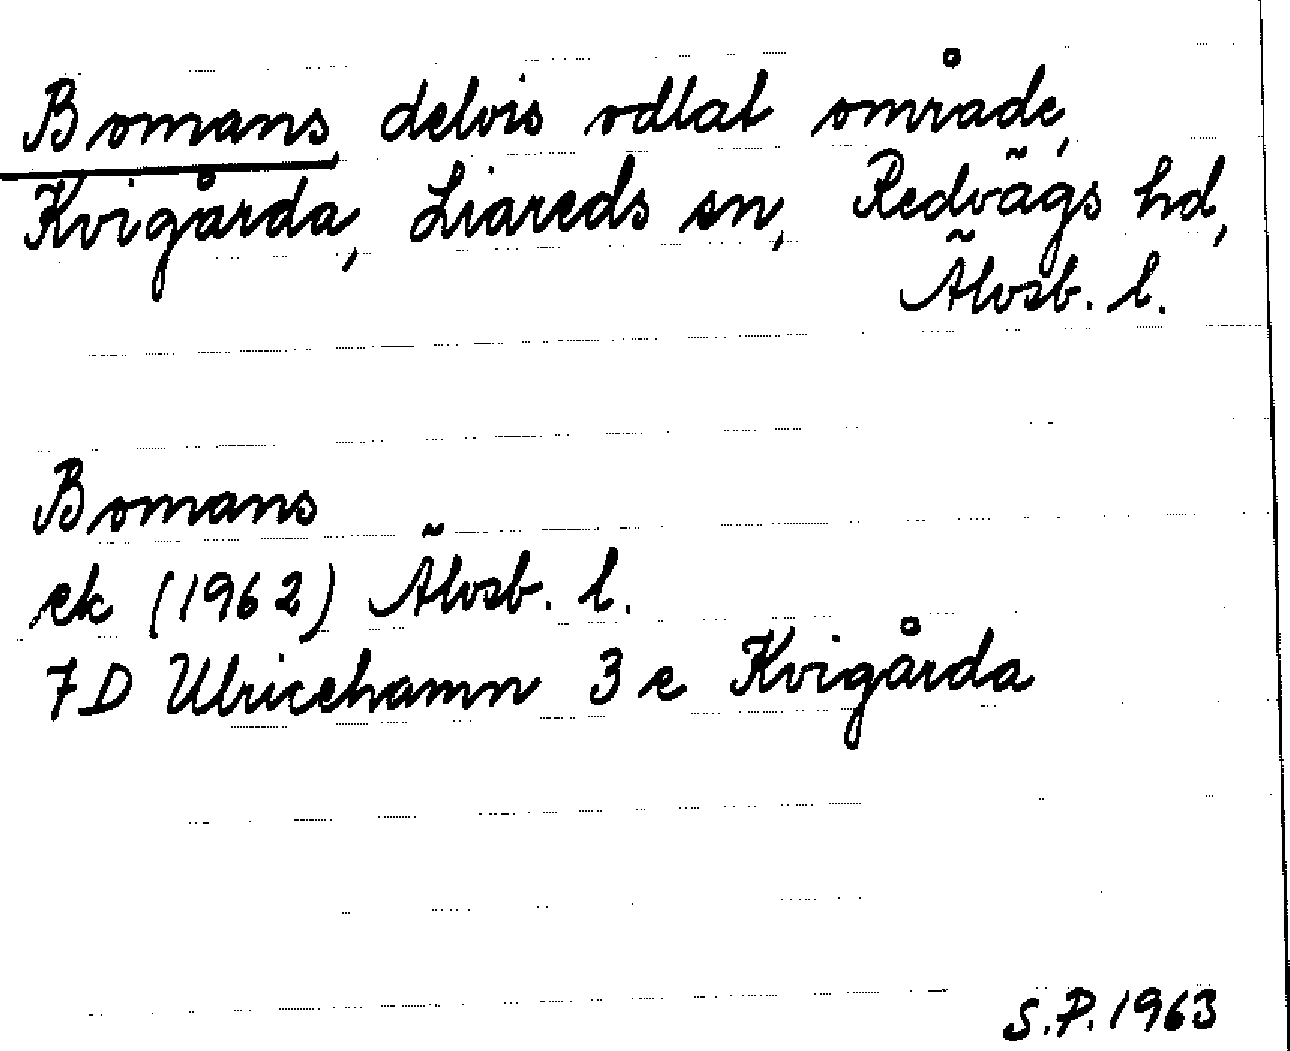 Bomans, delvis odlat område,
Kvigårda, Liareds sn, Redvägs hd,
Älvsb. l.
Bomans
ek (1962) Älvsb. l.
7D Ulricehamn 3 e Kvigårda
S.P. 1963